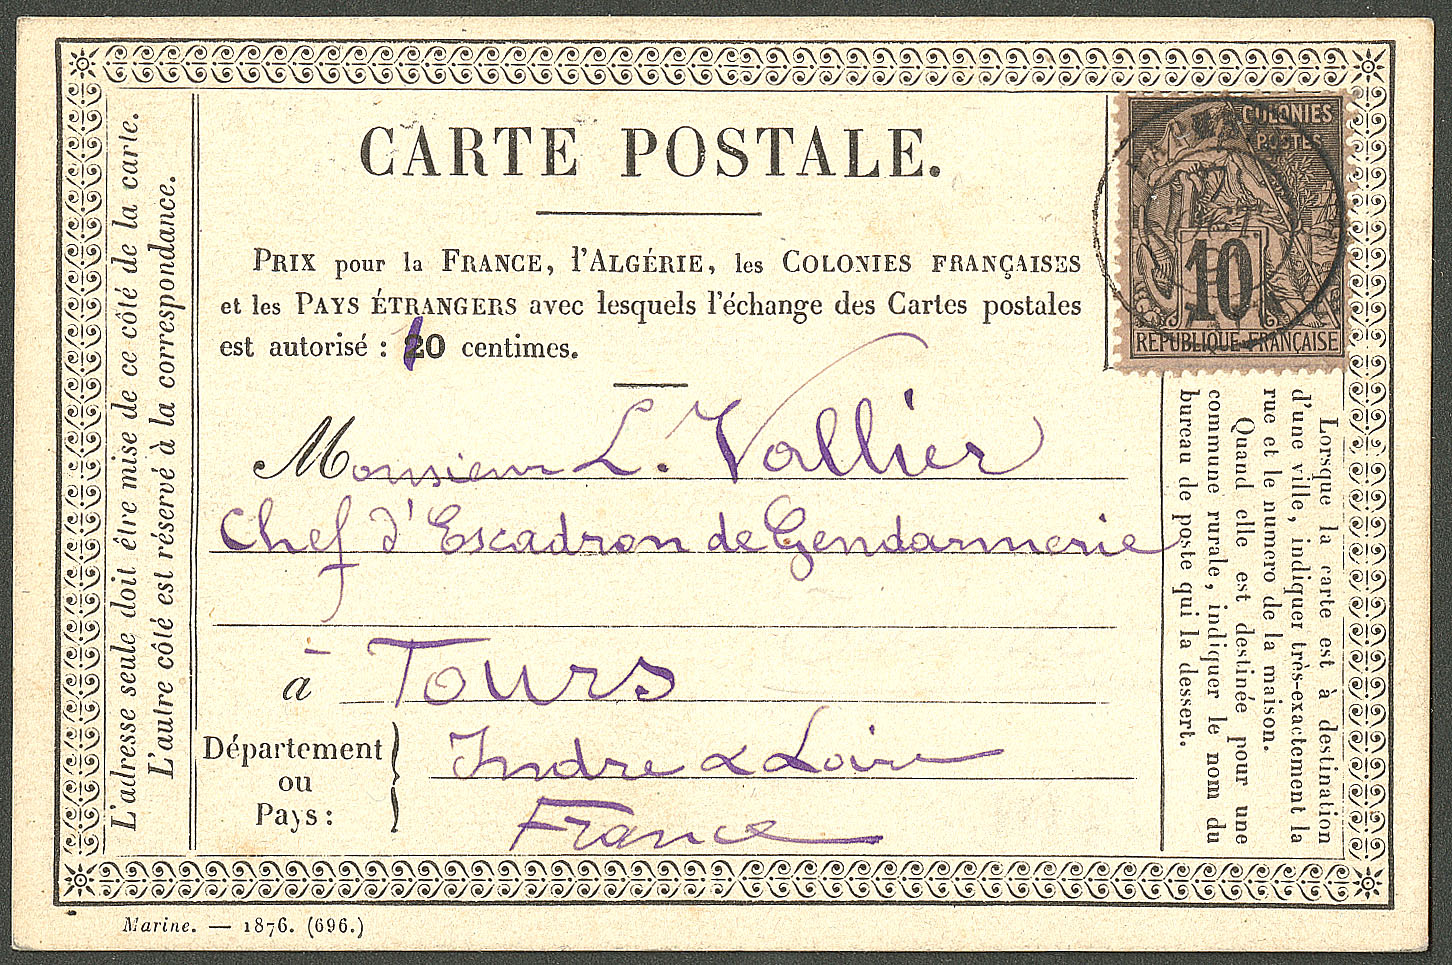 CARTE POSTALE.
PRIX pour la FRANCE, l'ALGÉRIE, les COLONIES FRANÇAISES
et les PAYS ÉTRANGERS avec lesquels l'échange des Cartes postales
est autorisé : 10 centimes.
Monsieur L. Vallier
Chef d'Escadron de Gendarmerie
à Tours
Département
ou
Pays :
Indre & Loire
France
L'adresse seule doit être mise de ce côté de la carte.
L'autre côté est réservé à la correspondance.
COLONIES
POSTES
10
REPUBLIQUE FRANÇAISE
Lorsque la carte est à destination
d'une ville, indiquer très-exactement la
rue et le numero de la maison.
Quand elle est destinée pour une
commune rurale, indiquer le nom du
bureau de poste qui la dessert.
Marine. — 1876. (696.)